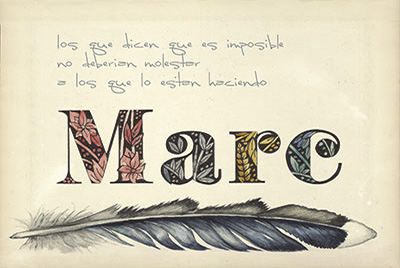 los que dicen que es imposible
no deberian molestar
a los que lo estan haciendo
Marc